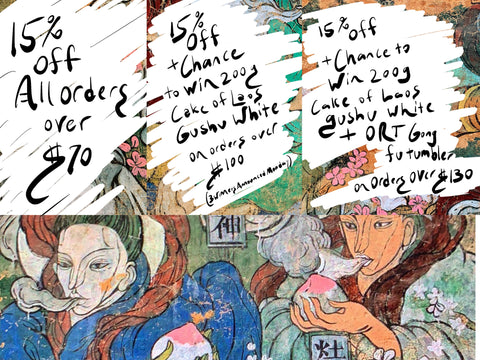 15%
off
All orders
over
$70
15%
off
+ Chance
to win 200g
Cake of Laos
Gushu White
on orders over
$100
(winners Announced Monday)
15%
off
+ Chance to
Win 200g
Cake of Laos
gushu white
+ ORT Gong
fu tumbler
on orders over $130
神
灶